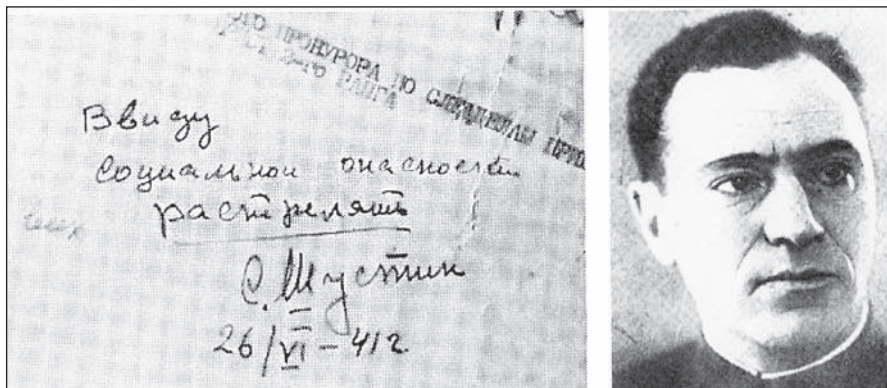 ГО ПРОКУРОРА ПО СПЕЦДЕЛАМ
2-ГО РАНГА
Ввиду
социальной опасности
растрелять
С. Шустин
26/VI – 41 г